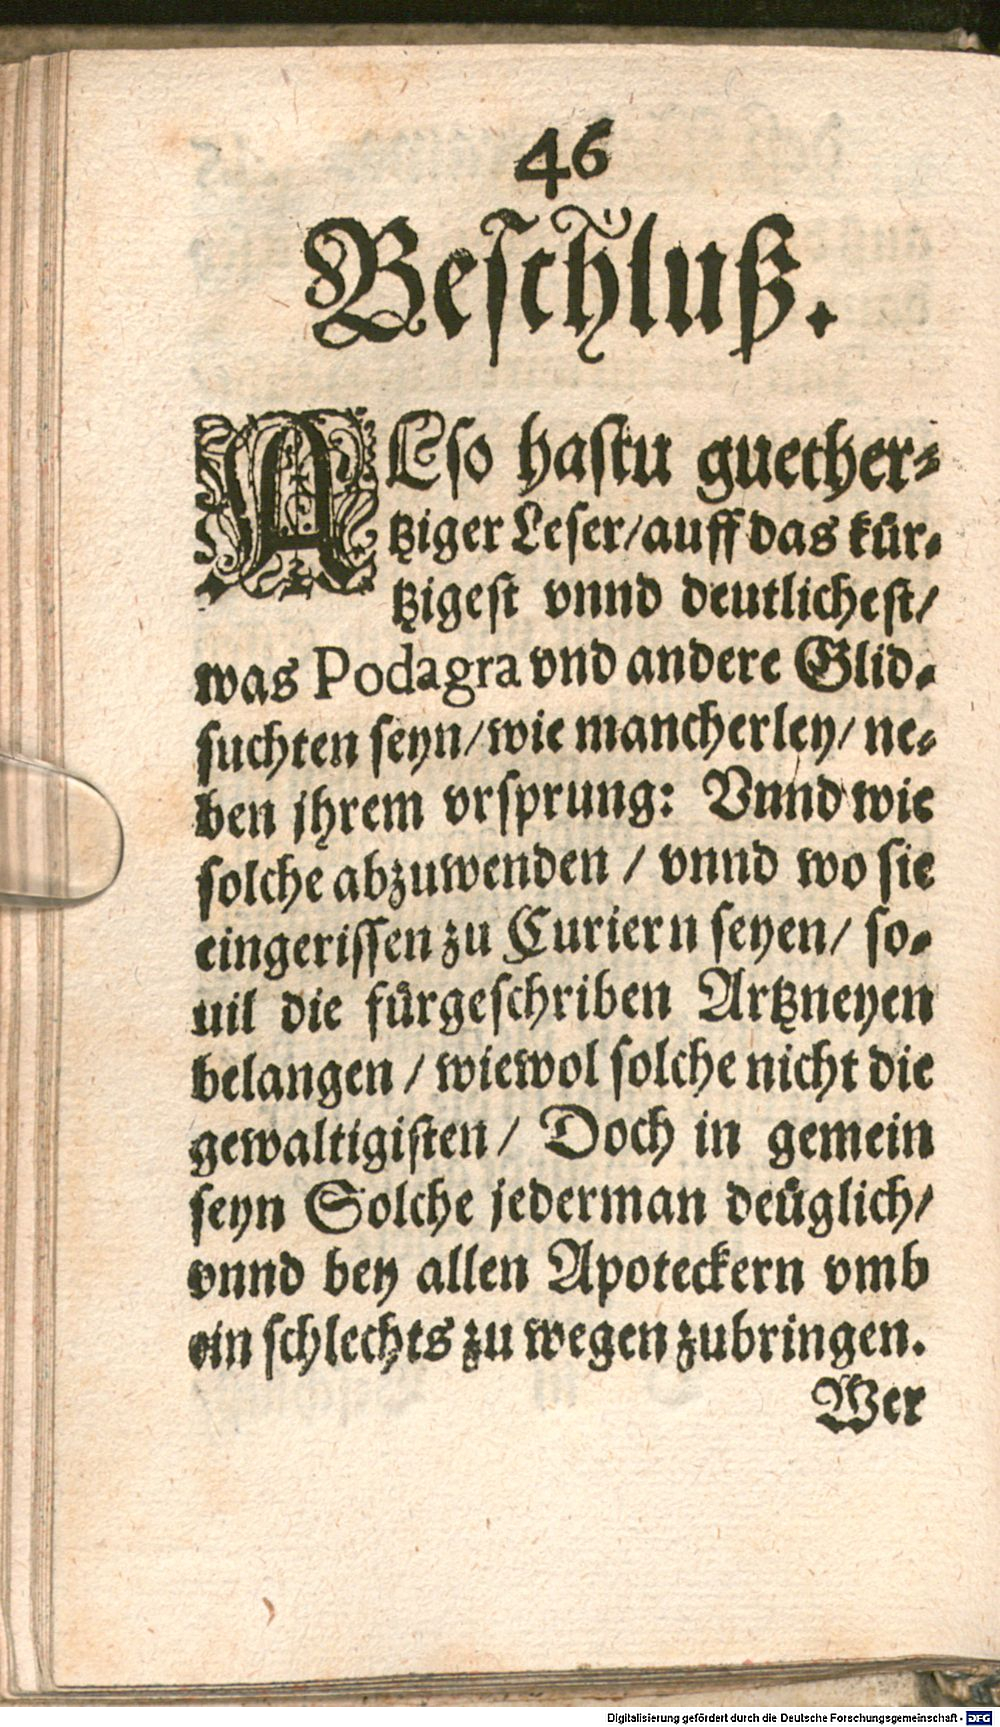 46
Beſchluß.
ALſo haſtu guether⸗
tziger Leſer/auff das kuͤr⸗
tzigeſt vnnd deutlicheſt/
was Podagra vnd andere Glid⸗
ſuchten ſeyn/wie mancherley/ ne⸗
ben jhrem vrſprung: Vnnd wie
ſolche abzuwenden / vnnd wo ſie
eingeriſſen zu Curiern ſeyen/ ſo⸗
uil die fuͤrgeſchriben Artzneyen
belangen / wiewol ſolche nicht die
gewaltigiſten / Doch in gemein
ſeyn Solche jederman deuͤglich/
vnnd bey allen Apoteckern vmb
ein ſchlechts zu wegen zubringen.
Wer
Digitalisierung gefördert durch die Deutsche Forschungsgemeinschaft - DFG